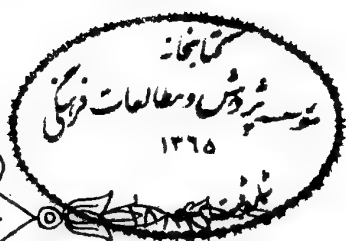 کتابخانه
موسسه پژوهش و مطالعات فرهنگی
۱۳۶۵